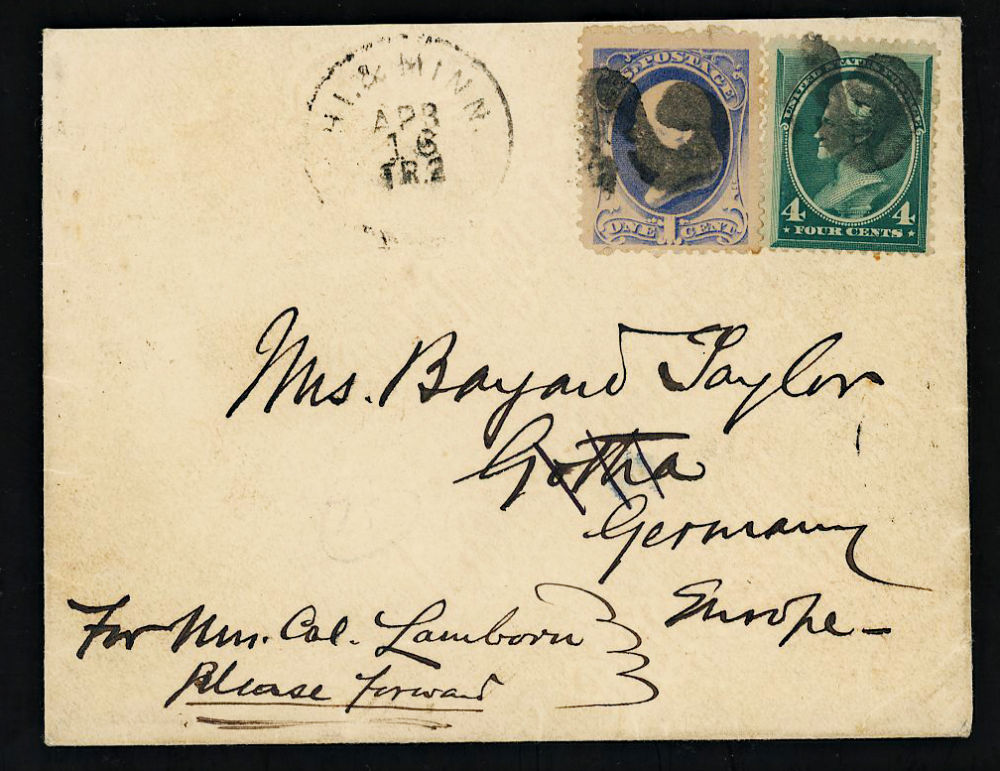 HI. & MINN.
APR
16
TR.2
U.S. POSTAGE
ONE 1 CENT
UNITED STATES
4 4
FOUR CENTS
Mrs. Bayard Taylor
Gotha
Germany
Europe –
For Mrs. Col. Lamborn
Please forward